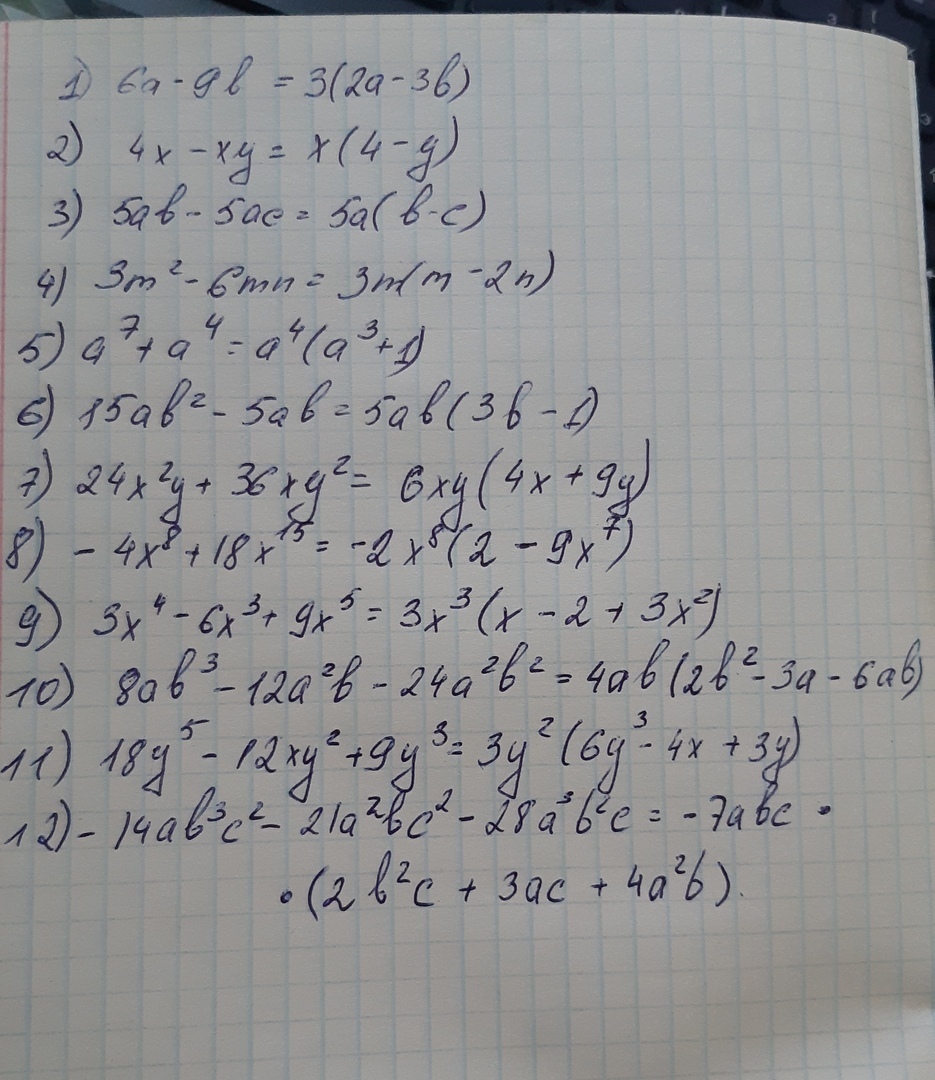 1) 6a - 9b = 3(2a - 3b)
2) 4x - xy = x(4 - y)
3) 5ab - 5ac = 5a(b - c)
4) 3m² - 6mn = 3m(m - 2n)
5) a⁷ + a⁴ = a⁴(a³ + 1)
6) 15ab² - 5ab = 5ab(3b - 1)
7) 24x²y + 36xy² = 6xy(4x + 9y)
8) - 4x⁸ + 18x¹⁵ = -2x⁸(2 - 9x⁷)
9) 3x⁴ - 6x³ + 9x⁵ = 3x³(x - 2 + 3x²)
10) 8ab³ - 12a²b - 24a²b² = 4ab(2b² - 3a - 6ab)
11) 18y⁵ - 12xy² + 9y³ = 3y²(6y³ - 4x + 3y)
12) - 14ab³c² - 21a²bc² - 28a³b²c = -7abc •
• (2b²c + 3ac + 4a²b).